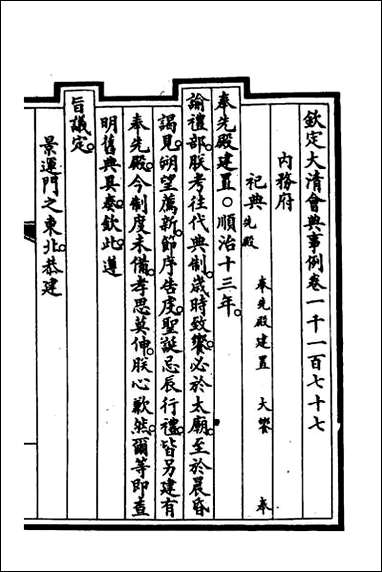 欽定大清會典事例卷一千一百七十七
內務府
祀典先殿 奉先殿建置 大饗 奉
奉先殿建置○順治十三年。
諭禮部朕考往代典制歲時致饗必於太廟至於晨昏
謁見朔望薦新節序告虔聖誕忌辰行禮皆另建有
奉先殿今制度未備孝思莫伸朕心歉然爾等即查
明舊典具奏欽此遵
旨議定。
景運門之東北恭建